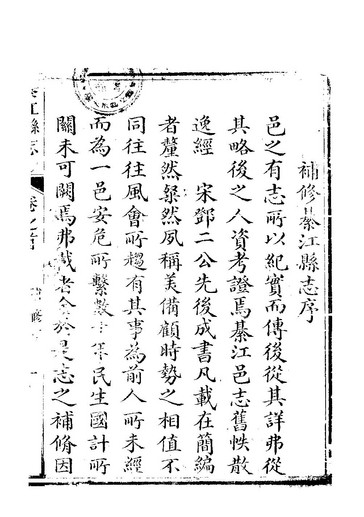 補修綦江縣志序
邑之有志所以紀實而傳後從其詳弗從
其略後之人資考證焉綦江邑志舊帙散
逸經 宋鄧二公先後成書凡載在簡編
者釐然粲然夙稱美備顧時勢之相值不
同往往風會所趨有其事為前人所未經
而為一邑安危所繫數十年民生國計所
關未可闕焉弗載者今於是志之補脩因
江縣志
卷之首